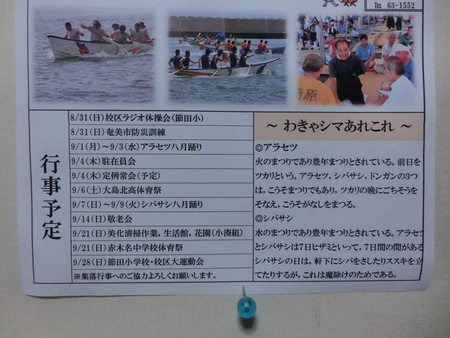 ℡ 63-1552
行事予定
8/31(日)校区ラジオ体操会(節田小)
8/31(日)奄美市防災訓練
9/1(月)～9/3(水)アラセツ八月踊り
9/4(木)駐在員会
9/4(木)定例常会(予定)
9/6(土)大島北高体育祭
9/7(日)～9/9(火)シバサシ八月踊り
9/14(日)敬老会
9/21(日)美化清掃作業,生活館,花園(小湊組)
9/21(日)赤木名中学校体育祭
9/28(日)節田小学校・校区大運動会
※集落行事へのご協力よろしくお願いします。
～ わきゃシマあれこれ ～
◎アラセツ
火のまつりであり豊年まつりとされている。前日を
ツカリという。アラセツ,シバサシ,ドンガンの3つ
は,こうそまつりでもあり,ツカリの晩にごちそうを
そなえ,こうそがなしをまつる。
◎シバサシ
水のまつりであり豊年まつりとされている。アラセツ
とシバサシは7日ヒザミといって,7日間の間がある
シバサシの日は,軒下にシバをさしたりススキを立
てたりするが,これは魔除けのためである。